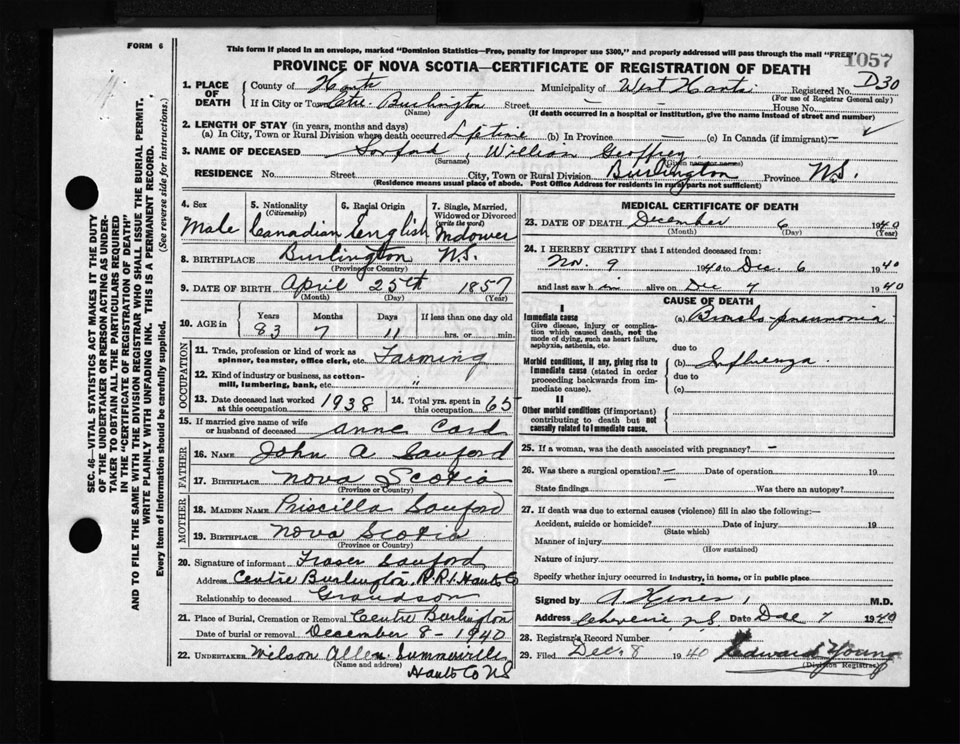 FORM 6
This form if placed in an envelope, marked "Dominion Statistics—Free, penalty for improper use $300," and properly addressed will pass through the mail "FREE"
1057
PROVINCE OF NOVA SCOTIA—CERTIFICATE OF REGISTRATION OF DEATH
D30
1. PLACE OF DEATH County of Hants Municipality of West Hants Registered No.
(For use of Registrar General only)
If in City or Town Ctre. Burlington Street — House No. —
(Name) (If death occurred in a hospital or institution, give the name instead of street and number)
2. LENGTH OF STAY (in years, months and days)
(a) In City, Town or Rural Division where death occurred Lifetime (b) In Province — (c) In Canada (if immigrant) —
3. NAME OF DECEASED Sanford, William Geoffrey
(Surname) (Given name or names)
RESIDENCE No. Street City, Town or Rural Division Burlington Province N.S.
(Residence means usual place of abode. Post Office Address for residents in rural parts not sufficient)
4. Sex Male
5. Nationality (Citizenship) Canadian
6. Racial Origin English
7. Single, Married, Widowed or Divorced (write the word) Widower
8. BIRTHPLACE Burlington N.S.
(Province or Country)
9. DATE OF BIRTH April 25th 1857
(Month) (Day) (Year)
10. AGE in Years Months Days If less than one day old
83 7 11 hrs. or min.
OCCUPATION
11. Trade, profession or kind of work as spinner, teamster, office clerk, etc. Farming
12. Kind of industry or business, as cotton-mill, lumbering, bank, etc. "
13. Date deceased last worked at this occupation 1938 14. Total yrs. spent in this occupation 65
15. If married give name of wife or husband of deceased Anne Card
FATHER
16. NAME John A Sanford
17. BIRTHPLACE Nova Scotia
(Province or Country)
MOTHER
18. MAIDEN NAME Priscilla Sanford
19. BIRTHPLACE Nova Scotia
(Province or Country)
20. Signature of informant Fraser Sanford
Address Centre Burlington, R.R.1. Hants Co
Relationship to deceased Grandson
21. Place of Burial, Cremation or Removal Centre Burlington
Date of burial or removal December 8 - 1940
22. UNDERTAKER Wilson Allen Summerville
(Name and address)
Hants Co NS
MEDICAL CERTIFICATE OF DEATH
23. DATE OF DEATH December 6 1940
(Month) (Day) (Year)
24. I HEREBY CERTIFY that I attended deceased from:
Nov. 9 1940 to Dec. 6 1940
and last saw h im alive on Dec 7 1940
CAUSE OF DEATH
I
Immediate cause
Give disease, injury or complication which caused death, not the mode of dying, such as heart failure, asphyxia, asthenia, etc.
(a) Broncho-pneumonia
due to
Morbid conditions, if any, giving rise to immediate cause (stated in order proceeding backwards from immediate cause).
(b) Influenza
due to
(c)
II
Other morbid conditions (if important) contributing to death but not causally related to immediate cause.
25. If a woman, was the death associated with pregnancy? —
26. Was there a surgical operation? — Date of operation 19
State findings Was there an autopsy?
27. If death was due to external causes (violence) fill in also the following:—
Accident, suicide or homicide? Date of injury 19
(State which)
Manner of injury
(How sustained)
Nature of injury
Specify whether injury occurred in industry, in home, or in public place
Signed by M.D.
Address Cheverie, N.S. Date Dec 7 1940
28. Registrar's Record Number
29. Filed Dec. 8 1940 Edward Young
(Division Registrar)
SEC. 46—VITAL STATISTICS ACT MAKES IT THE DUTY
OF THE UNDERTAKER OR PERSON ACTING AS UNDER-
TAKER TO OBTAIN ALL THE PARTICULARS REQUIRED
IN THE "CERTIFICATE OF REGISTRATION OF DEATH"
AND TO FILE THE SAME WITH THE DIVISION REGISTRAR WHO SHALL ISSUE THE BURIAL PERMIT.
WRITE PLAINLY WITH UNFADING INK. THIS IS A PERMANENT RECORD.
Every item of Information should be carefully supplied. (See reverse side for instructions.)